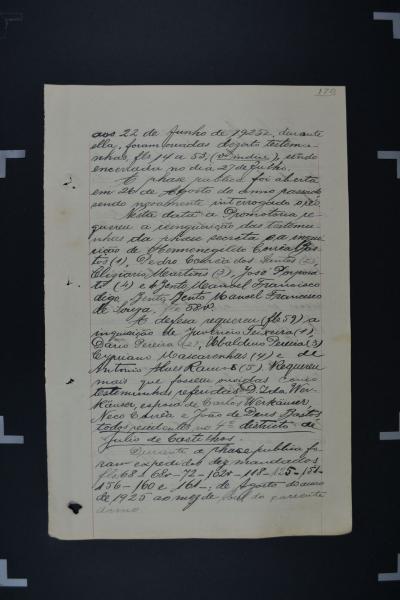 170
aos 22 de Junho de 1925, durante
ella, foram ouvidas dezoito testemu-
nhas, fls 14 a 53, (vº indice), sendo
encerrada no dia 27 de Julho.
A phase publica foi aberta
em 26 de Agosto do anno passado
sendo novamente interrogado o réo.
Nesta data a Promotoria re-
quereu a reinquirição das testemu-
nhas da phase secreta e a inqui-
rição de Hermenegildo Corrêa Bas-
tos (1), Pedro Corrêa dos Santos (2),
Eligiario Martins (3), José
(4) e Agente Manoel Francisco
digo, Bento Manoel Francisco
de Souza, 58v.
A defesa requereu (fls 59) a
inquirição de Juvencio Teixeira (1),
Dario Pereira (2), Ubaldino Pereira (3)
Cypriano Mascarenhas (4) e de
Antonio Alves Ramos (5). Requereu
mais que fossem ouvidas como
testeminhas referidas D. Zilda Wer-
Käuser, esposa de Carlos Werkäuser,
Neco Corrêa e João de Deus Bastos
todos residentes no 4º districto de
Julio de Castilhos.
Durante a phase publica fo-
ram expedidos dez mandados
fls 68 - 68v - 72 - 162v - 118 - 125 - 151 -
156 - 160 e 161 -, de Agosto do anno
de 1925 ao mez de do corrente
anno.